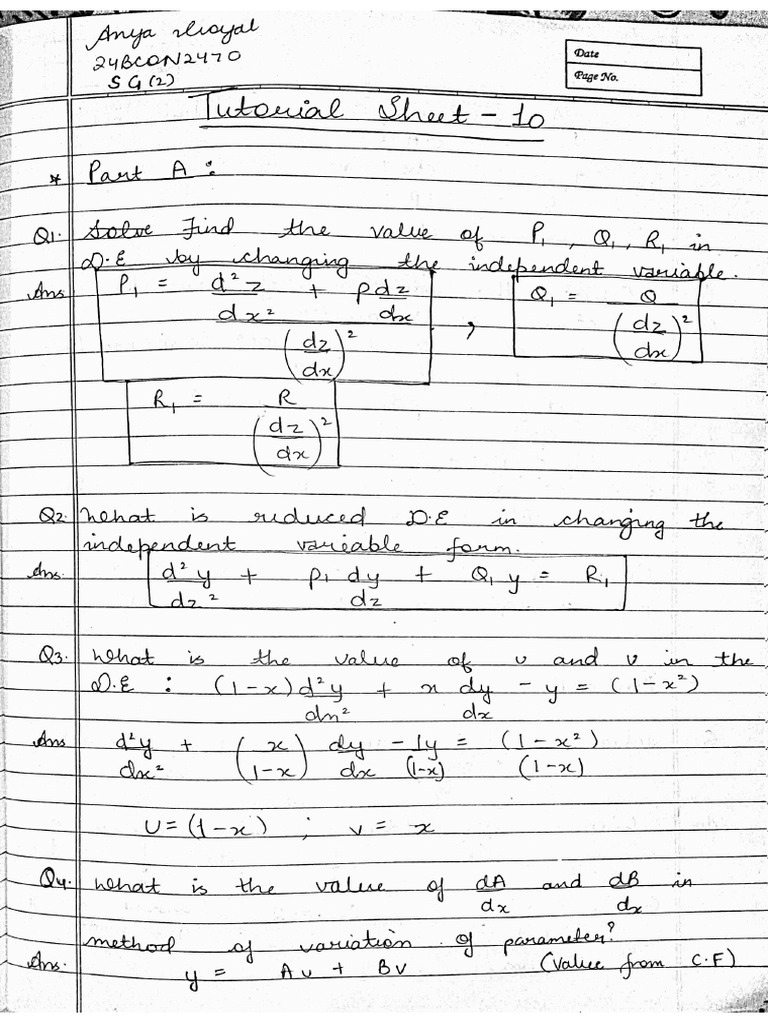 Anya
24BCON2470
SG(2)
Date
Page No.
Tutorial Sheet - 10
* Part A :
Q1. Solve Find the value of P₁, Q₁, R₁ in
D.E by changing the independent variable.
Ans P₁ = (d²z/dx² + P dz/dx) / (dz/dx)² , Q₁ = Q / (dz/dx)²
R₁ = R / (dz/dx)²
Q2. What is reduced D.E in changing the
independent variable form.
Ans. d²y/dz² + P₁ dy/dz + Q₁ y = R₁
Q3. What is the value of u and v in the
D.E : (1-x) d²y/dx² + x dy/dx - y = (1-x²)
Ans d²y/dx² + (x/(1-x)) dy/dx - 1y/(1-x) = (1-x²)/(1-x)
U = (1-x) ; v = x
Q4. What is the value of dA/dx and dB/dx in
method of variation of parameter?
Ans. y = Au + Bv (Value from C.F)